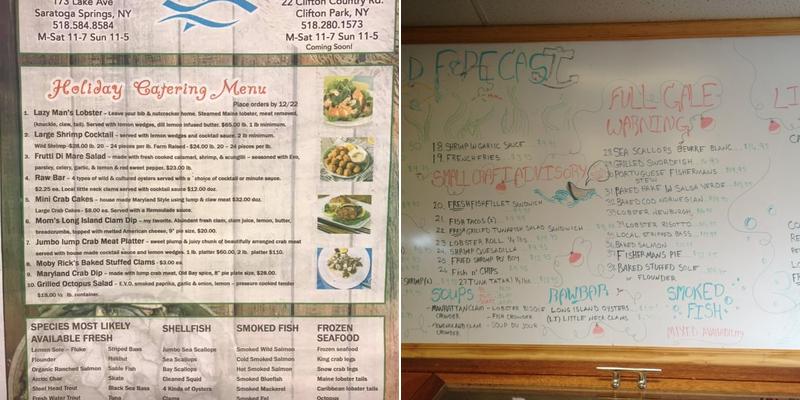 173 Lake Ave
Saratoga Springs, NY
518.584.8584
M-Sat 11-7 Sun 11-5
22 Clifton Country Rd.
Clifton Park, NY
518.280.1573
M-Sat 11-7 Sun 11-5
Coming Soon!
Holiday Catering Menu
Place orders by 12/22
1. Lazy Man's Lobster – Leave your bib & nutcracker home. Steamed Maine lobster, meat removed,
(knuckle, claw, tail). Served with lemon wedges, dill lemon infused butter. $65.00 lb. 1 lb minimum.
2. Large Shrimp Cocktail – served with lemon wedges and cocktail sauce. 2 lb minimum.
Wild Shrimp -$28.00 lb. 20 – 24 pieces per lb. Farm Raised - $24.00 lb. 20 – 24 pieces per lb.
3. Frutti Di Mare Salad – made with fresh cooked calamari, shrimp, & scungilli – seasoned with Evo,
parsley, celery, garlic, & lemon & red sweet pepper, $23.00 lb.
4. Raw Bar – 4 types of wild & cultured oysters served with a choice of cocktail or minute sauce.
$2.25 ea. Local little neck clams served with cocktail sauce $12.00 doz.
5. Mini Crab Cakes – house made Maryland Style using lump & claw meat $32.00 doz.
Large Crab Cakes - $8.00 ea. Served with a Remoulade sauce.
6. Mom's Long Island Clam Dip – my favorite. Abundent fresh clam, clam juice, lemon, butter,
breadcrumbs, topped with melted American cheese, 9" pie size, $20.00.
7. Jumbo lump Crab Meat Platter – sweet plump & juicy chunk of beautifully arranged crab meat
served with house made cocktail sauce and lemon wedges. 1 lb. platter $60.00, 2 lb. platter $110.
8. Moby Rick's Baked Stuffed Clams - $3.00 ea.
9. Maryland Crab Dip – made with lump crab meat, Old Bay spice, 8" pie plate size, $28.00.
10. Grilled Octopus Salad – E.V.O. smoked paprika, garlic & onion, lemon – pressure cooked tender
$18.00 ½ lb. container.
SPECIES MOST LIKELY
AVAILABLE FRESH
Lemon Sole – Fluke
Flounder
Organic Ranched Salmon
Arctic Char
Steel Head Trout
Fresh Water Trout
Striped Bass
Halibut
Sable Fish
Skate
Black Sea Bass
Tuna
SHELLFISH
Jumbo Sea Scallops
Sea Scallops
Bay Scallops
Cleaned Squid
4 Kinds of Oysters
Clams
SMOKED FISH
Smoked Wild Salmon
Cold Smoked Salmon
Hot Smoked Salmon
Smoked Bluefish
Smoked Mackerel
Smoked Eel
FROZEN
SEAFOOD
Frozen seafood
King crab legs
Snow crab legs
Maine lobster tails
Caribbean lobster tails
Octopus
D FORECAST
18. SHRIMP W GARLIC SAUCE
19. FRENCH FRIES
SMALL CRAFT ADVISORY
20. FRESH FISH FILLET SANDWICH
21. FISH TACOS (2)
22. FRESH GRILLED TUNAFISH SALAD SANDWICH
23. LOBSTER ROLL ¼ lb
24. SHRIMP QUESADILLA
25. FRIED SHRIMP PO' BOY
26. FISH N' CHIPS
27. TUNA TATAKI
SOUPS
MANHATTAN CLAM CHOWDER
NEW ENGLAND CLAM CHOWDER
- LOBSTER BISQUE
- FISH CHOWDER
- SOUP DU JOUR
FULL GALE
WARNING
28. SEA SCALLOPS BEURRE BLANC
29. GRILLED SWORDFISH
30. PORTUGUESE FISHERMANS
STEW
31. BAKED HAKE W SALSA VERDE
32. BAKED COD NORWEGIAN
33. LOBSTER NEWBURGH
34. LOBSTER RISOTTO
35. LOCAL STRIPED BASS
36. BAKED SALMON
37. FISHERMANS PIE
38. BAKED STUFFED SOLE
or FLOUNDER
RAWBAR
LONG ISLAND OYSTERS
(LI) LITTLE NECK CLAMS
SMOKED
FISH
MIXED AVAILABILITY
LI